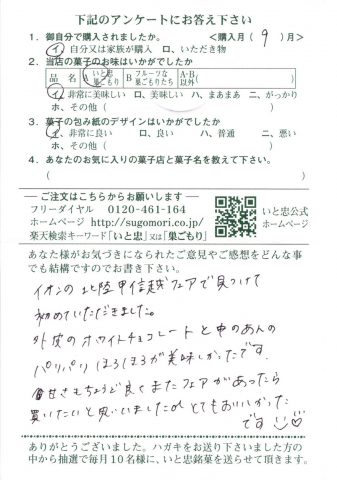 下記のアンケートにお答え下さい
1．御自分で購入されましたか。 ＜購入月（ 9 ）月＞
イ、自分又は家族が購入 ロ、いただき物
2．当店の菓子のお味はいかがでしたか
品 名 A いと忠巣ごもり B フルーツな巣ごもりたち A・B以外（ ）
イ、非常に美味しい ロ、美味しい ハ、まあまあ ニ、がっかり
ホ、その他（ ）
3．菓子の包み紙のデザインはいかがでしたか
イ、非常に良い ロ、良い ハ、普通 ニ、悪い
ホ、その他（ ）
4．あなたのお気に入りの菓子店と菓子名を教えて下さい。
（ ）
ご注文はこちらからお願いします
フリーダイヤル 0120-461-164
ホームページ http://sugomori.co.jp/
楽天検索キーワード「いと忠」又は「巣ごもり」
いと忠公式
ホームページ
あなた様がお気づきになられたご意見やご感想をどんな事
でも結構ですのでお書き下さい。
イオンの北陸甲信越フェアで見つけて
初めていただきました。
外皮のホワイトチョコレートと中のあんの
パリパリ ほろほろが美味しかったです。
甘さもちょうど良くまたフェアがあったら
買いたいと思いましたｍ とてもおいしかった
です
ありがとうございました。ハガキをお送り下さいました方の
中から抽選で毎月10名様に、いと忠銘菓を送らせて頂きます。